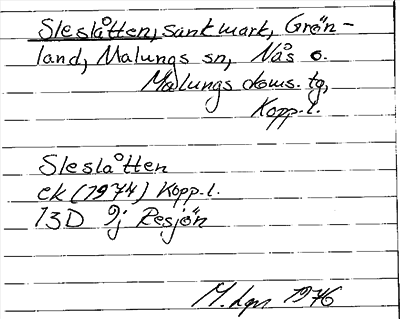 Sleslåtten, sankmark, Grön-
land, Malungs sn, Nås o.
Malungs doms. tg,
Kopp. l.
Sleslåtten
ek (1974) Kopp. l.
13D 9j Resjön
1976